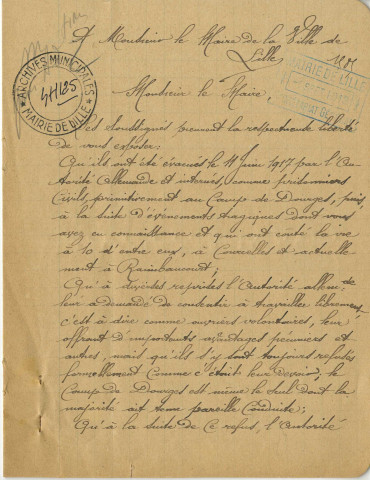 A Monsieur le Maire de la Ville de
Lille
ARCHIVES MUNICIPALES
4H125
MAIRIE DE LILLE
MAIRIE DE LILLE
Monsieur le Maire,
Les Soussignés prennent la respectueuse liberté
de vous exposer:
Qu'ils ont été évacués le 11 Juin 1917 par l'Au-
torité Allemande et internés, comme prisonniers
Civils primitivement au Camp de Dourges, puis
à la suite d'événements tragiques dont vous
avez eu connaissance et qui ont coûté la vie
à 10 d'entre eux, à Courcelles et actuelle-
ment à Raimbeaucourt;
Qu'à diverses reprises l'Autorité allemande
leur a demandé de continuer à travailler librement
c'est à dire comme ouvriers volontaires, leur
offrant d'importants avantages pécuniers et
autres, mais qu'ils s'y sont toujours refusés
formellement comme c'était leur devoir, le
Camp de Dourges est même le seul dont la
majorité ait tenu pareille conduite;
Qu'à la suite de ce refus, l'Autorité